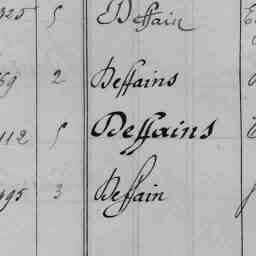 325 5 Deffain
69 2 Deffains
112 5 Deffains
495 3 Deffain